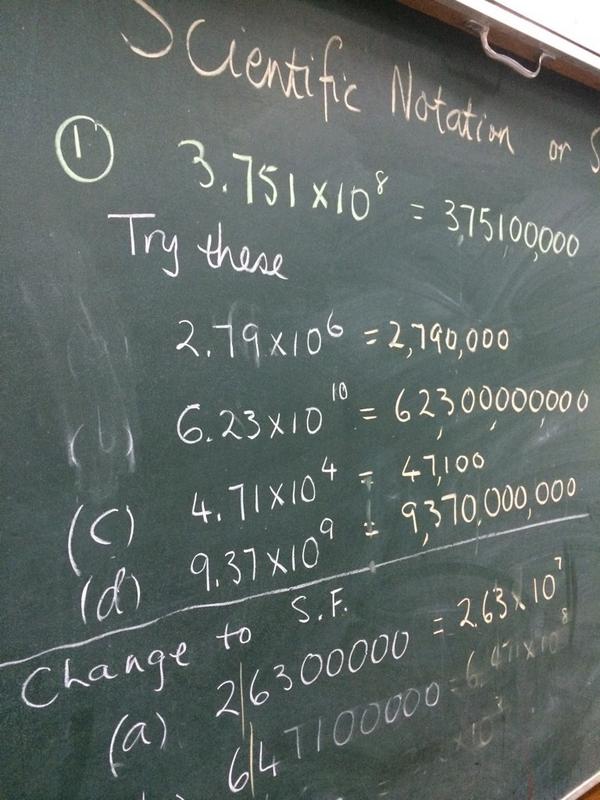 Scientific Notation or S
① 3.751×10⁸ = 375100,000
Try these
2.79×10⁶ = 2,790,000
(b) 6.23×10¹⁰ = 62,300,000,000
(c) 4.71×10⁴ = 47,100
(d) 9.37×10⁹ = 9,370,000,000
Change to S.F.
(a) 26300000 = 2.63×10⁷
647100000 = 6.471×10⁸